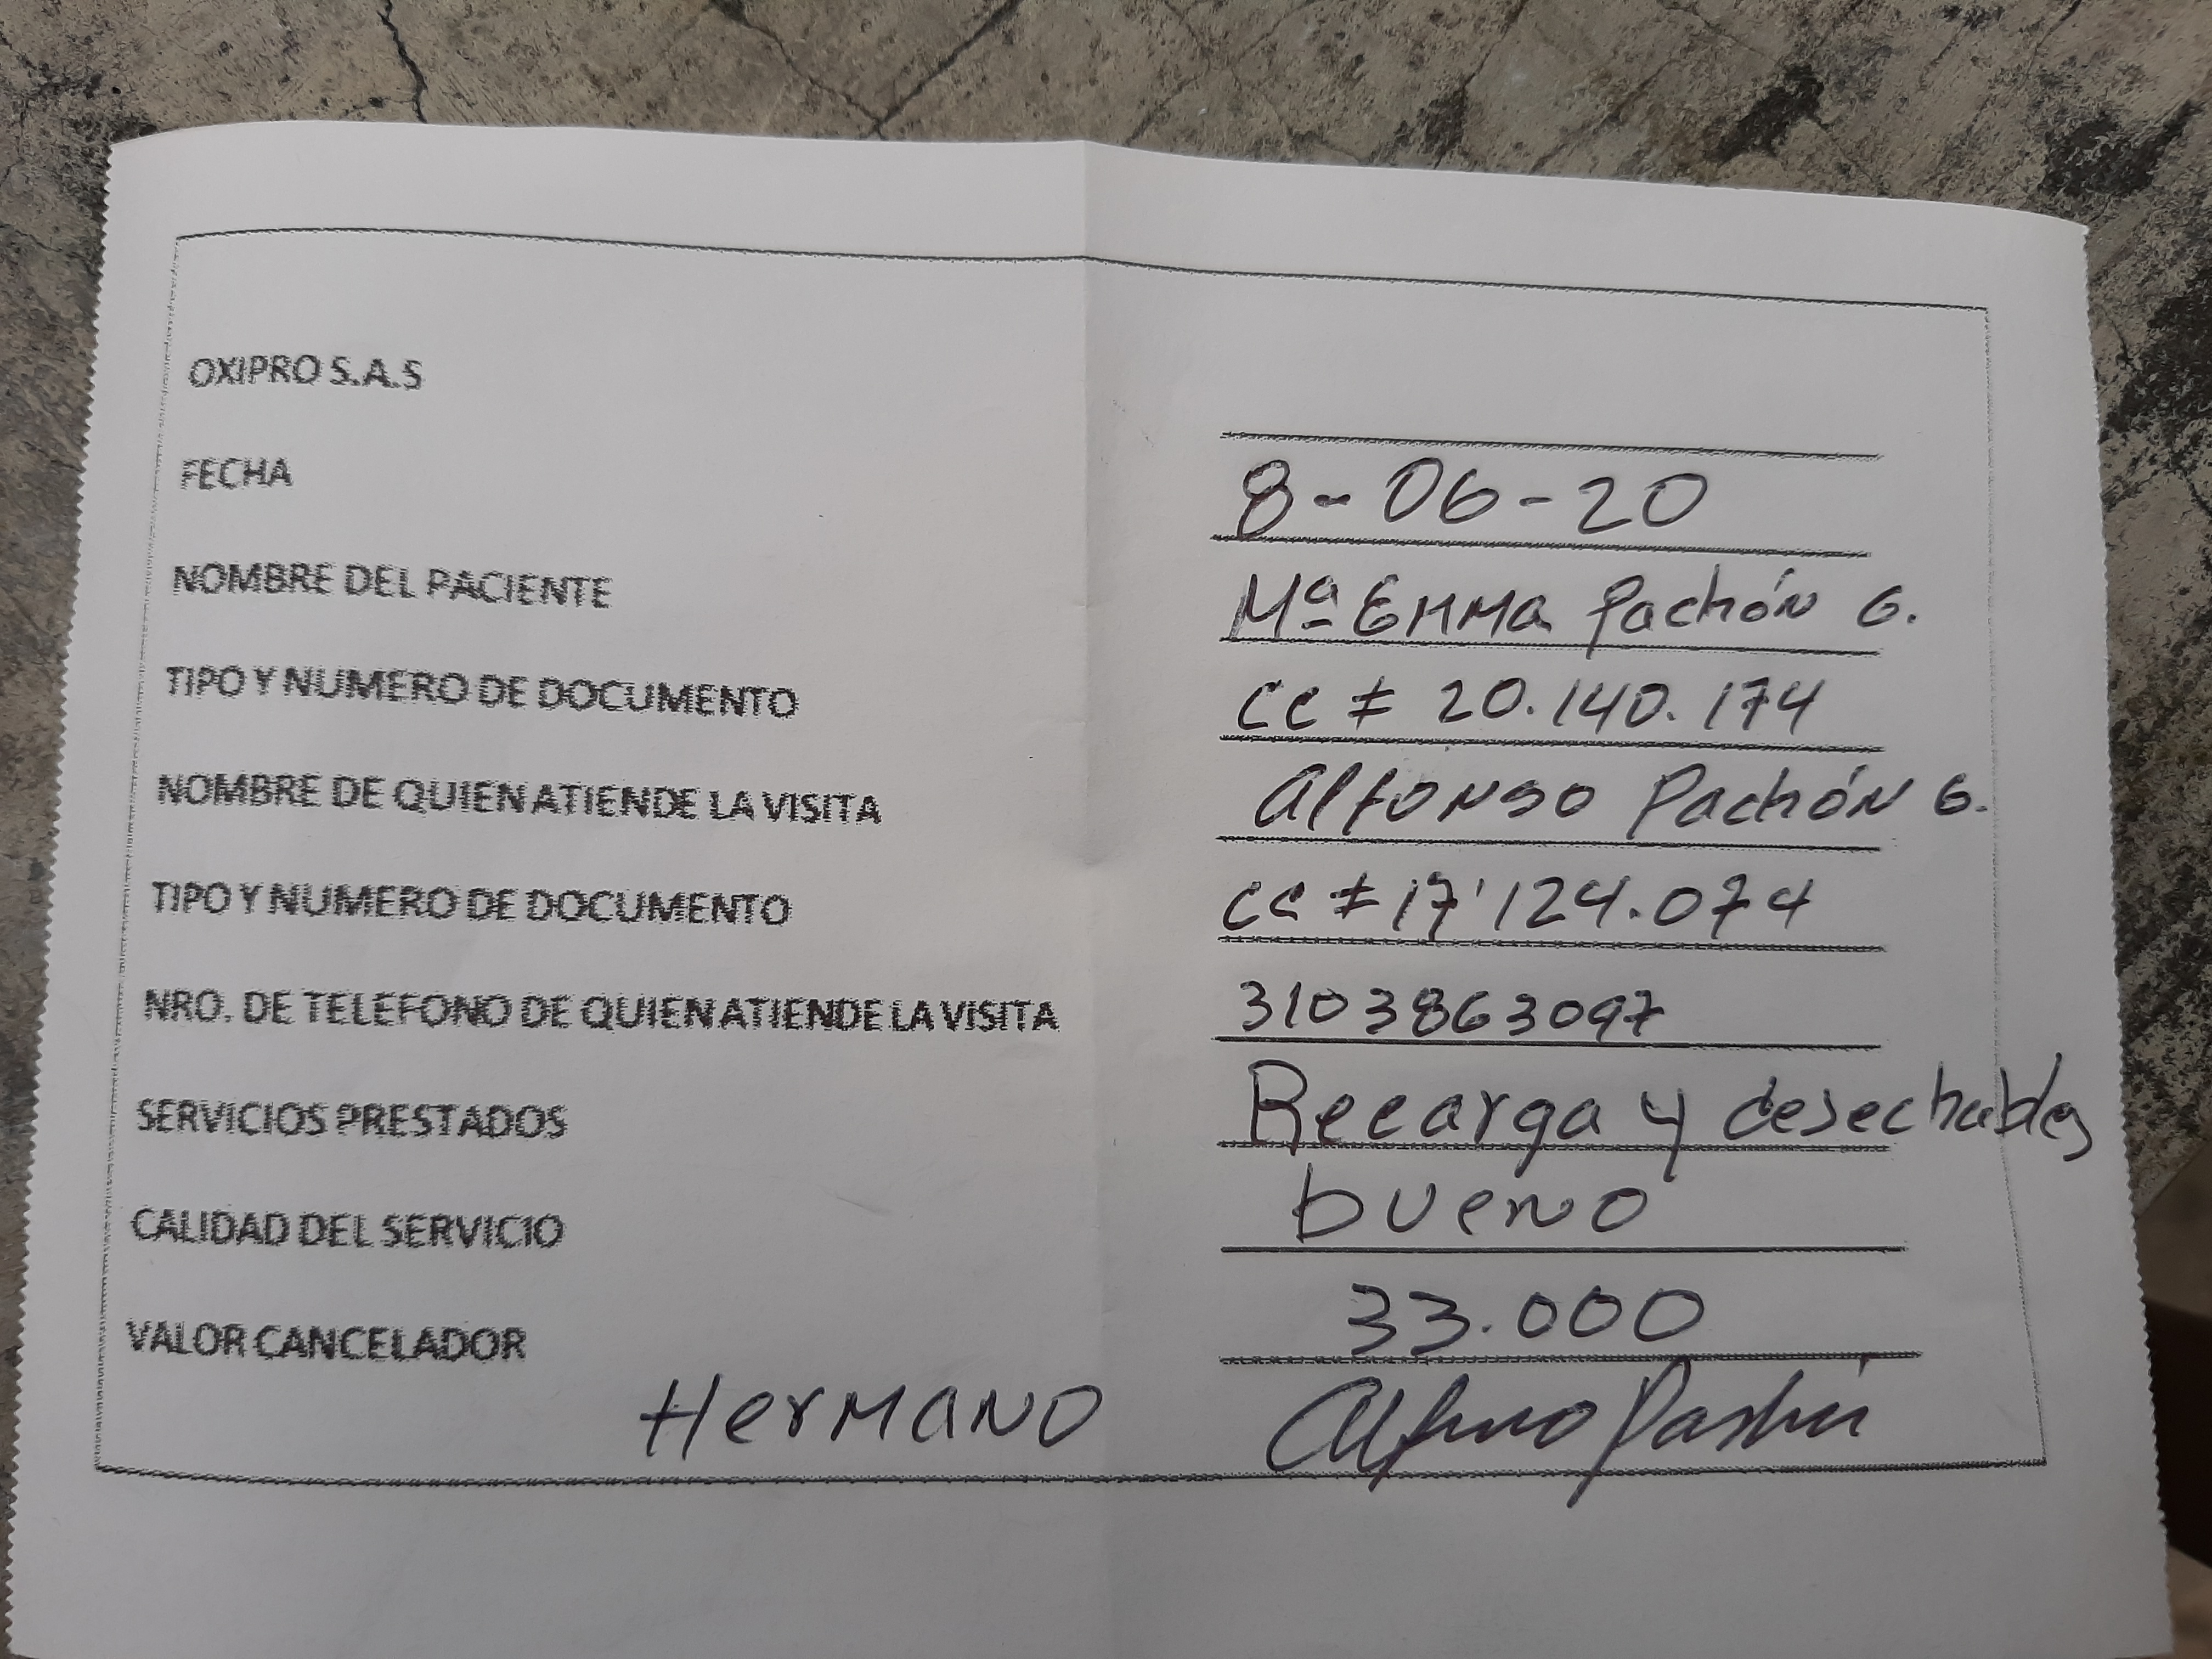 OXIPRO S.A.S
FECHA 8-06-20
NOMBRE DEL PACIENTE Mª Emma Pachón G.
TIPO Y NUMERO DE DOCUMENTO CC # 20.140.174
NOMBRE DE QUIEN ATIENDE LA VISITA Alfonso Pachón G.
TIPO Y NUMERO DE DOCUMENTO CC # 17'124.074
NRO. DE TELEFONO DE QUIEN ATIENDE LA VISITA 3103863097
SERVICIOS PRESTADOS Recarga y desechables
CALIDAD DEL SERVICIO bueno
VALOR CANCELADOR 33.000
Hermano Alfonso Pachón